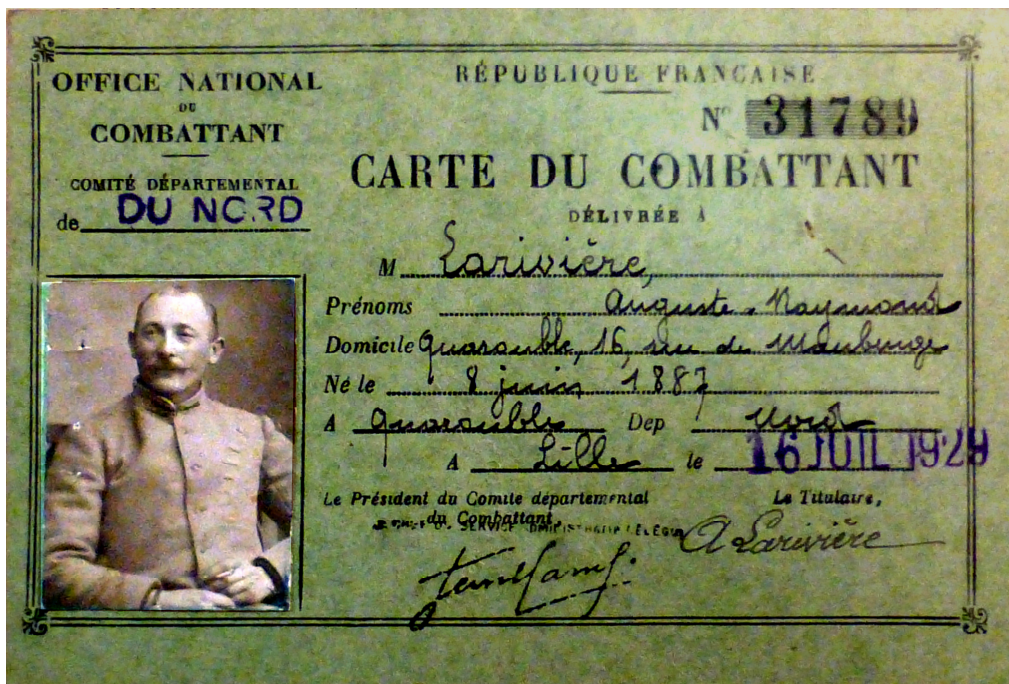 OFFICE NATIONAL
DU
COMBATTANT
COMITÉ DÉPARTEMENTAL
de DU NORD
RÉPUBLIQUE FRANÇAISE
N° 31789
CARTE DU COMBATTANT
DÉLIVRÉE À
M Larivière,
Prénoms Auguste, Raymond
Domicile Quarouble, 16, rue de Maubeuge
Né le 8 juin 1887
A Quarouble Dep Nord
A Lille le 16 JUIL 1929
Le Président du Comite départemental
du Combattant,
SERVICE ADMINISTRATIF DÉLÉGUÉ
Le Titulaire,
A Larivière